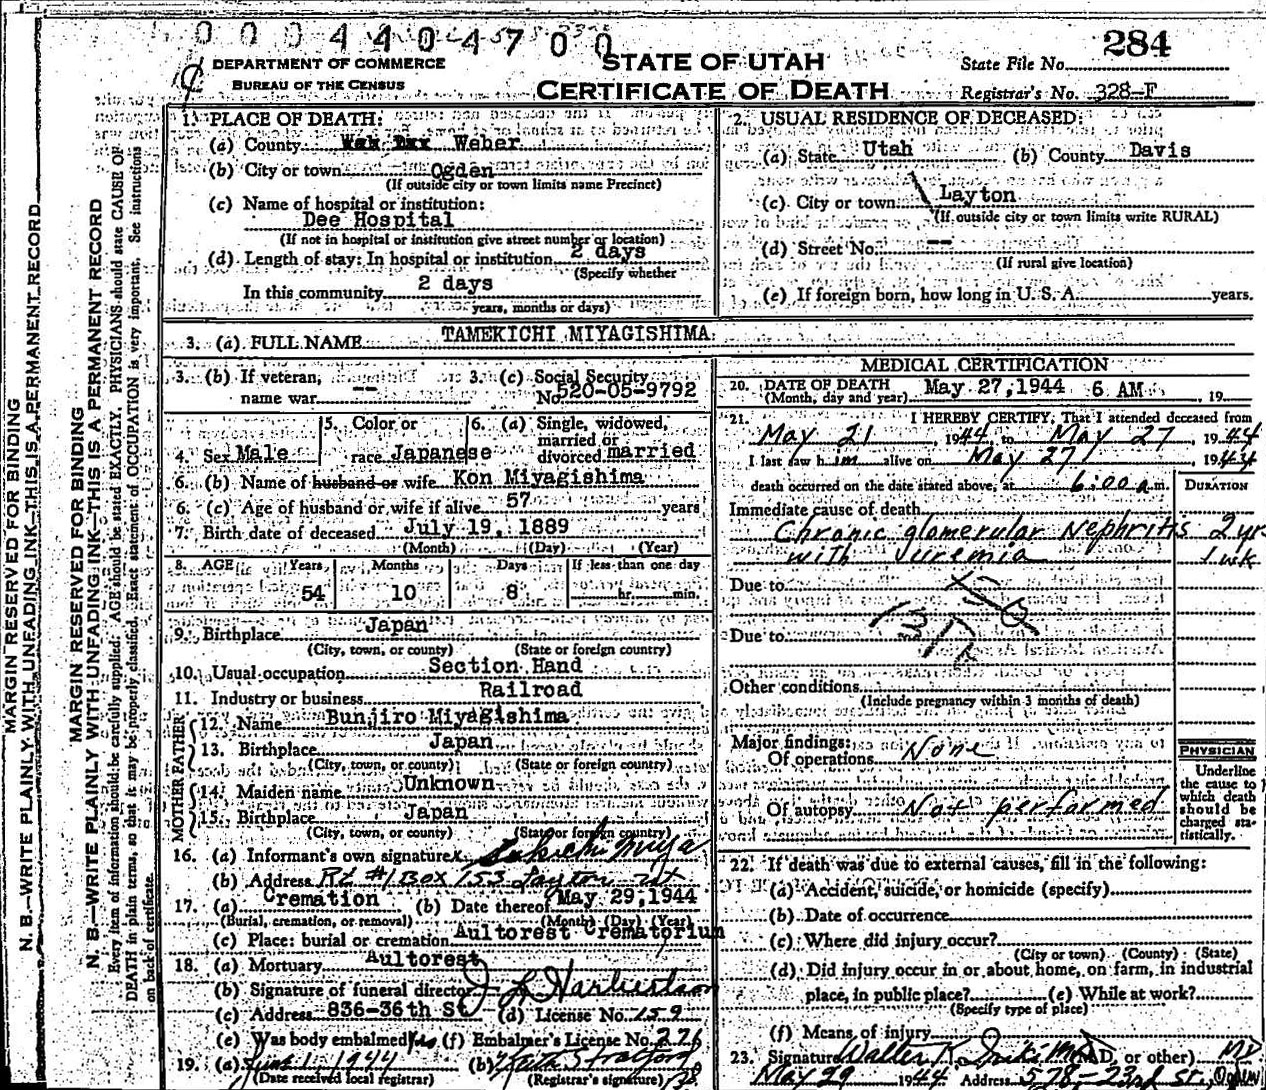 0 0 0 4 4 0 4 7 0 0
284
DEPARTMENT OF COMMERCE
BUREAU OF THE CENSUS
STATE OF UTAH
CERTIFICATE OF DEATH
State File No.
Registrar's No. 328-F
1. PLACE OF DEATH:
(a) County Weber
(b) City or town Ogden
(If outside city or town limits name Precinct)
(c) Name of hospital or institution:
Dee Hospital
(If not in hospital or institution give street number or location)
(d) Length of stay: In hospital or institution 2 days
(Specify whether
In this community 2 days
years, months or days)
2. USUAL RESIDENCE OF DECEASED:
(a) State Utah (b) County Davis
(c) City or town Layton
(If outside city or town limits write RURAL)
(d) Street No. --
(If rural give location)
(e) If foreign born, how long in U. S. A. years.
3. (a) FULL NAME TAMEKICHI MIYAGISHIMA
3. (b) If veteran, name war -- 3. (c) Social Security No. 520-05-9792
4. Sex Male 5. Color or race Japanese 6. (a) Single, widowed, married or divorced married
6. (b) Name of husband or wife Kon Miyagishima
6. (c) Age of husband or wife if alive 57 years
7. Birth date of deceased July 19, 1889
(Month) (Day) (Year)
8. AGE Years Months Days If less than one day
54 10 8 hr. min.
9. Birthplace Japan
(City, town, or county) (State or foreign country)
10. Usual occupation Section Hand
11. Industry or business Railroad
FATHER
12. Name Bunjiro Miyagishima
13. Birthplace Japan
(City, town, or county) (State or foreign country)
MOTHER
14. Maiden name Unknown
15. Birthplace Japan
(City, town, or county) (State or foreign country)
16. (a) Informant's own signature x
(b) Address Rt #1 Box 153 Layton Ut
17. (a) Cremation (b) Date thereof May 29, 1944
(Burial, cremation, or removal) (Month) (Day) (Year)
(c) Place: burial or cremation Aultorest Crematorium
18. (a) Mortuary Aultorest
(b) Signature of funeral director
(c) Address 836-36th St (d) License No. 159
(e) Was body embalmed Yes (f) Embalmer's License No. 276
19. (a) June 1, 1944 (b)
(Date received local registrar) (Registrar's signature)
MEDICAL CERTIFICATION
20. DATE OF DEATH May 27, 1944 6 AM , 19
(Month, day and year)
21. I HEREBY CERTIFY, That I attended deceased from
May 21, 1944 to May 27, 1944
I last saw him alive on May 27, 1944
death occurred on the date stated above, at 6:00 a.m. DURATION
Immediate cause of death
Chronic glomerular Nephritis 2 yrs
with Uremia 1 wk
Due to
Due to
Other conditions
(Include pregnancy within 3 months of death)
Major findings:
Of operations None
Of autopsy Not performed
PHYSICIAN
Underline
the cause to
which death
should be
charged sta-
tistically.
22. If death was due to external causes, fill in the following:
(a) Accident, suicide, or homicide (specify)
(b) Date of occurrence
(c) Where did injury occur?
(City or town) (County) (State)
(d) Did injury occur in or about home, on farm, in industrial
place, in public place? (e) While at work?
(Specify type of place)
(f) Means of injury
23. Signature (M.D. or other) M.D.
May 29 1944 Address 578-23rd St. Ogden
MARGIN RESERVED FOR BINDING
N. B.—WRITE PLAINLY WITH UNFADING INK—THIS IS A PERMANENT RECORD
MARGIN RESERVED FOR BINDING
N. B.—WRITE PLAINLY WITH UNFADING INK—THIS IS A PERMANENT RECORD
Every item of information should be carefully supplied. AGE should be stated EXACTLY. PHYSICIANS should state CAUSE OF
DEATH in plain terms, so that it may be properly classified. Exact statement of OCCUPATION is very important. See instructions
on back of certificate.